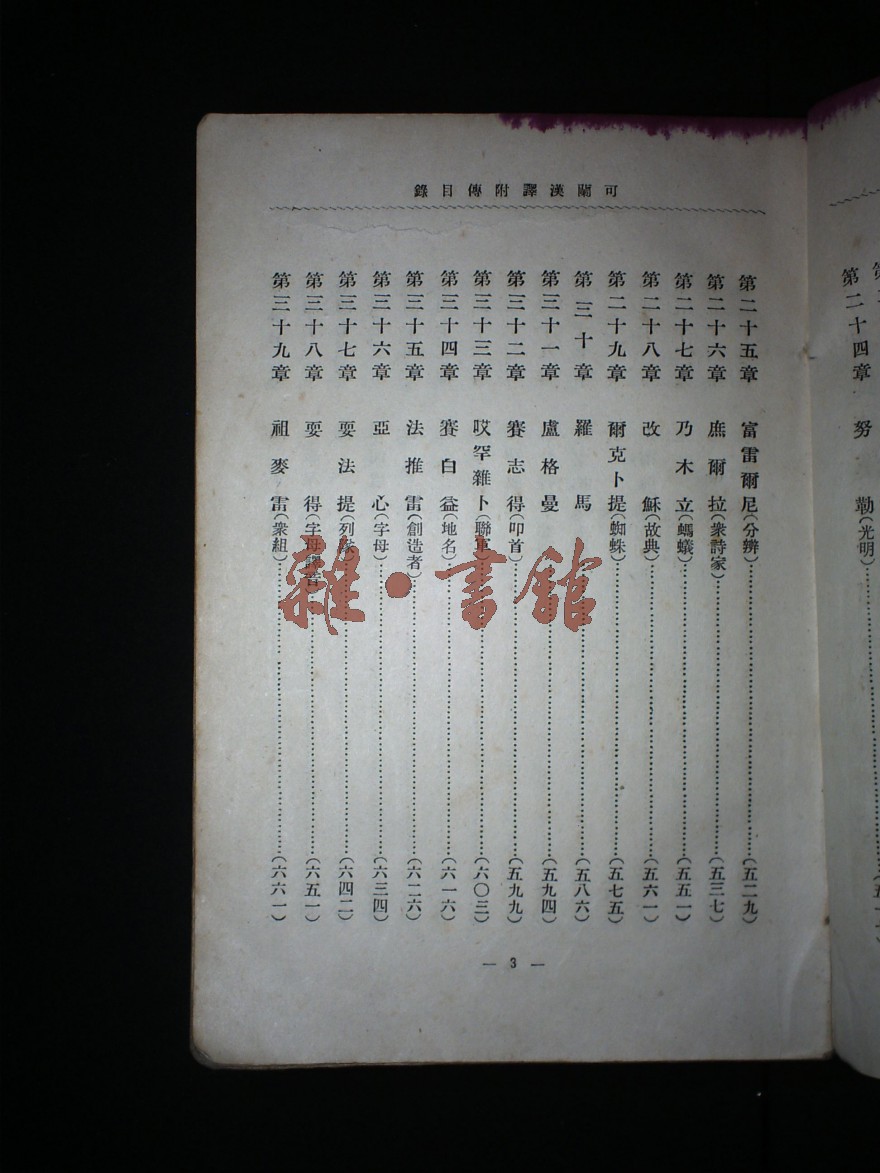 可蘭漢譯附傳目錄
第二十四章 努勒(光明)
第二十五章 富雷爾尼(分辨)(五二九)
第二十六章 庶爾拉(衆詩家)(五三七)
第二十七章 乃木立(螞蟻)(五五一)
第二十八章 改穌(故典)(五六一)
第二十九章 爾克卜提(蜘蛛)(五七五)
第三十章 羅馬(五八六)
第三十一章 盧格曼(五九四)
第三十二章 賽志得(叩首)(五九九)
第三十三章 哎罕雜卜(聯軍)(六〇三)
第三十四章 賽白益(地名)(六一六)
第三十五章 法推雷(創造者)(六二六)
第三十六章 亞心(字母)(六三四)
第三十七章 耍法提(列)(六四二)
第三十八章 耍得(字母)(六五一)
第三十九章 祖麥雷(衆組)(六六一)
— 3 —
雜·書館